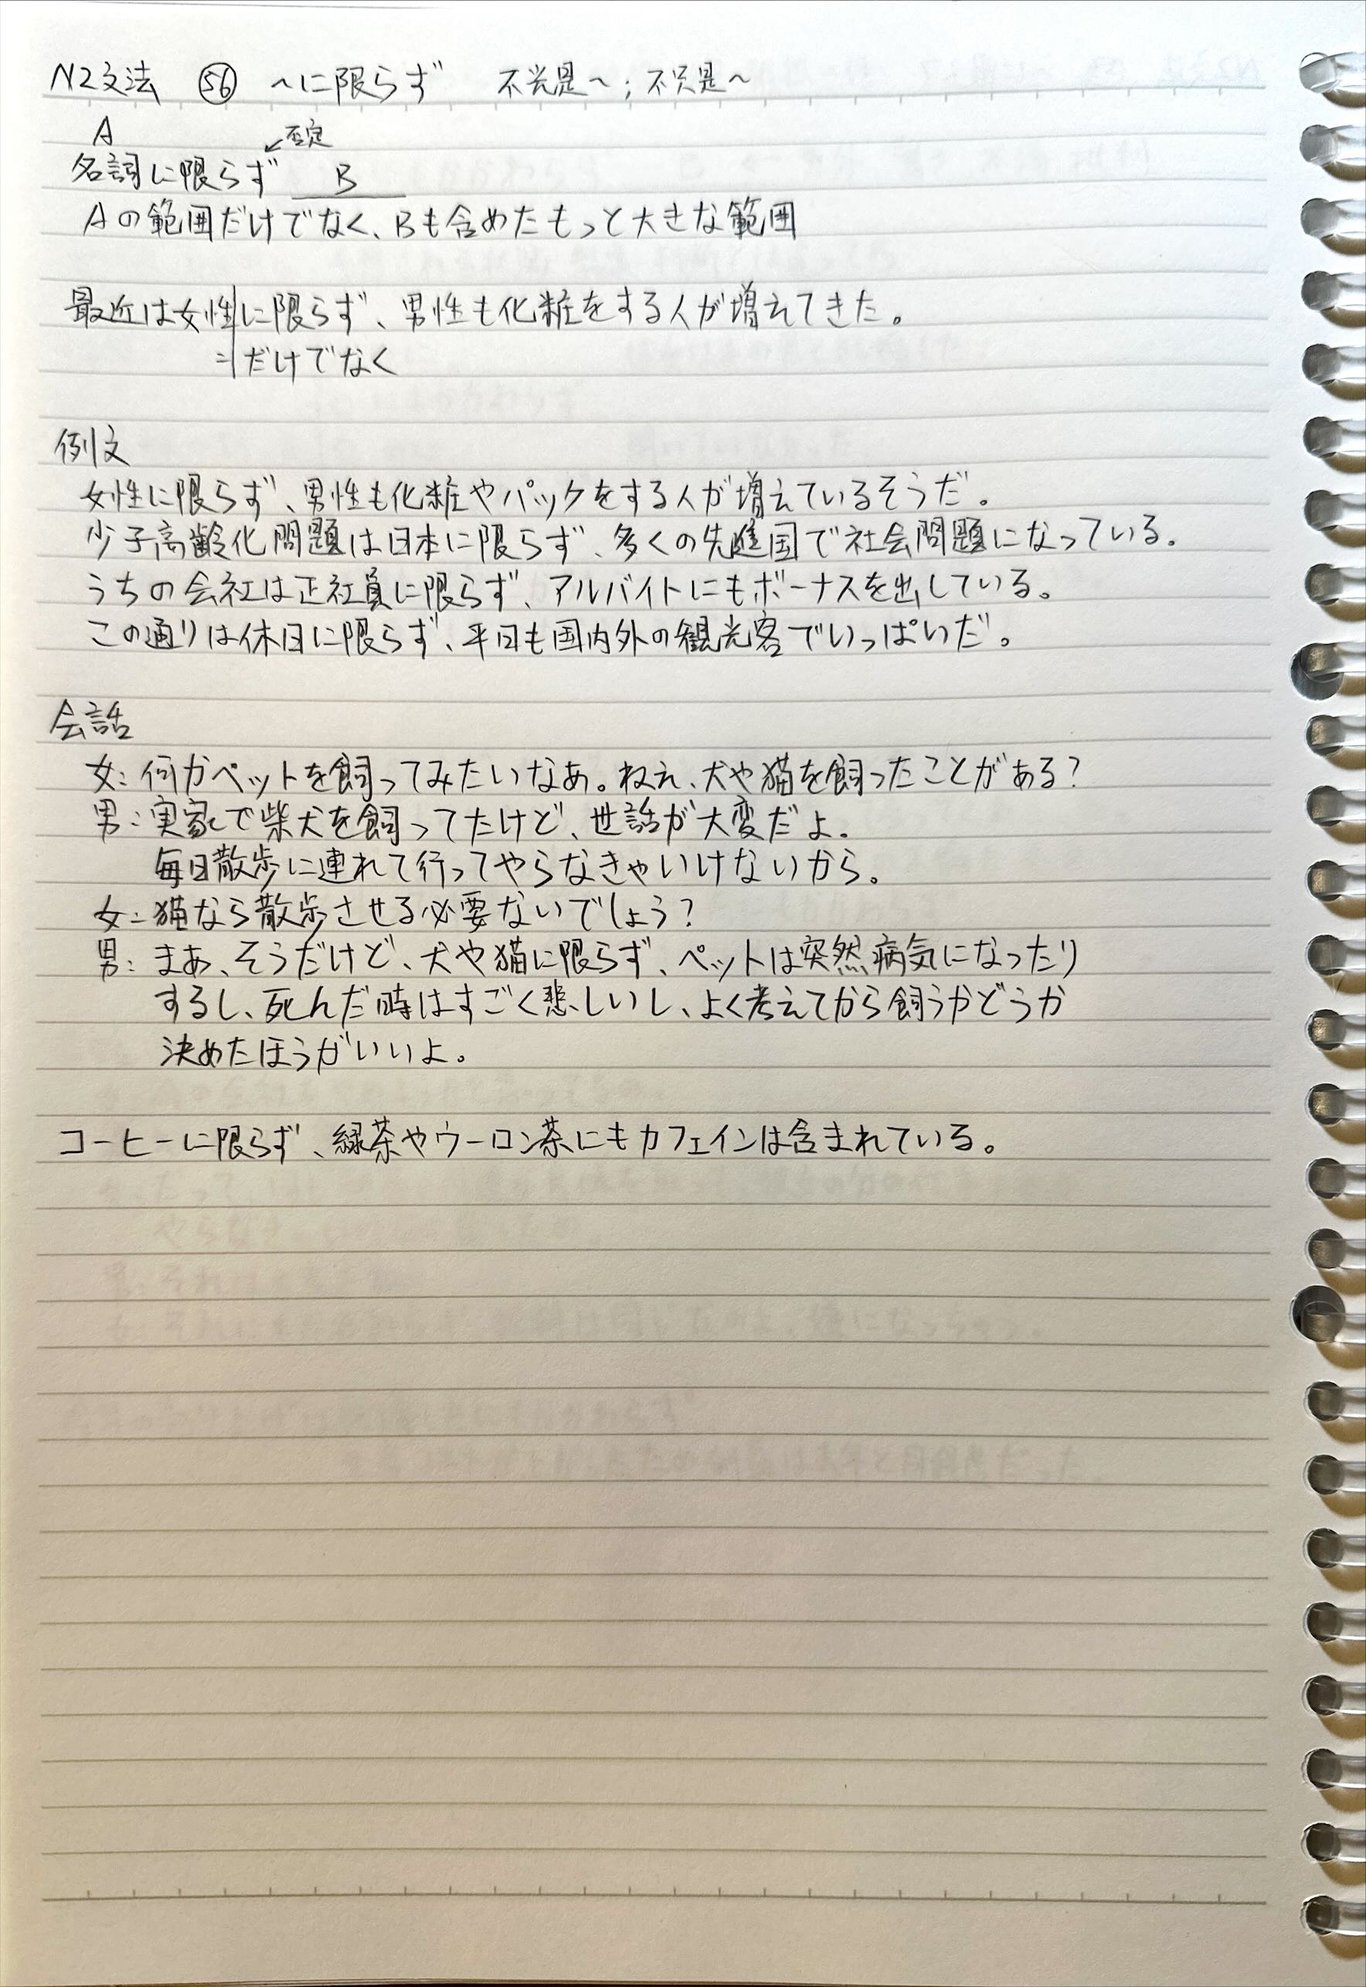 N2文法 56 〜に限らず 不光是〜；不只是〜
A
否定
名詞に限らず B
Aの範囲だけでなく、Bも含めたもっと大きな範囲
最近は女性に限らず、男性も化粧をする人が増えてきた。
=だけでなく
例文
女性に限らず、男性も化粧やパックをする人が増えているそうだ。
少子高齢化問題は日本に限らず、多くの先進国で社会問題になっている。
うちの会社は正社員に限らず、アルバイトにもボーナスを出している。
この通りは休日に限らず、平日も国内外の観光客でいっぱいだ。
会話
女：何かペットを飼ってみたいなあ。ねえ、犬や猫を飼ったことがある？
男：実家で柴犬を飼ってたけど、世話が大変だよ。
毎日散歩に連れて行ってやらなきゃいけないから。
女：猫なら散歩させる必要ないでしょう？
男：まあ、そうだけど、犬や猫に限らず、ペットは突然病気になったり
するし、死んだ時はすごく悲しいし、よく考えてから飼うかどうか
決めたほうがいいよ。
コーヒーに限らず、緑茶やウーロン茶にもカフェインは含まれている。